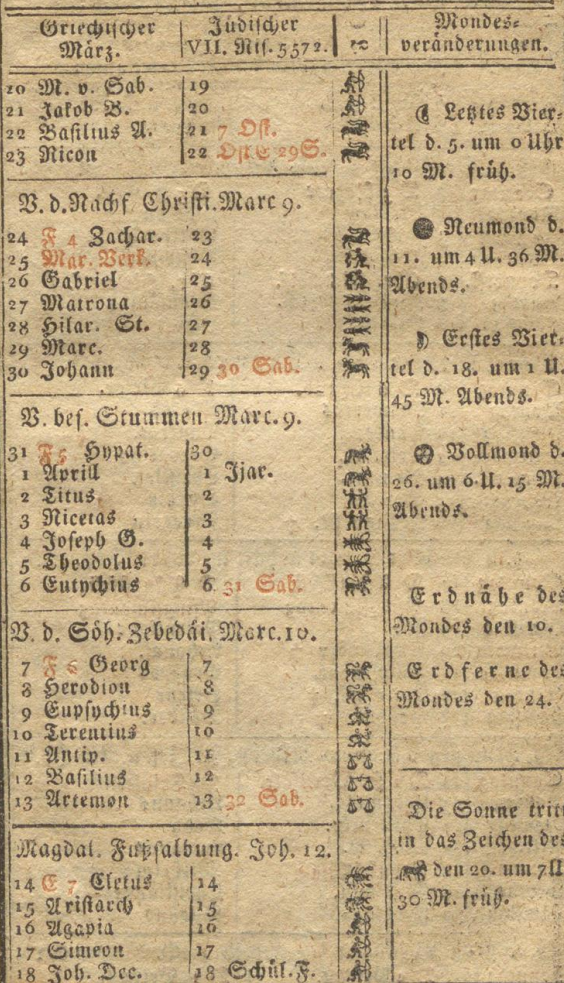 Griechischer März. | Jüdischer VII. Nis. 5572. | Mondes-
veränderungen.
10 M. v. Sab. 19
21 Jakob B. 20
22 Basilius A. 21 7 Ost.
23 Nicon 22 Ost E 29 S.
V. d. Nachf Christi. Marc 9.
24 F 4 Zachar. 23
25 Mar. Verk. 24
26 Gabriel 25
27 Matrona 26
28 Hilar. St. 27
29 Marc. 28
30 Johann 29 30 Sab.
V. bes. Stummen Marc. 9.
31 F 5 Hypat. 30
1 Aprill 1 Jjar.
2 Titus 2
3 Nicetas 3
4 Joseph G. 4
5 Theodolus 5
6 Eutychius 6 31 Sab.
V. d. Söh. Zebedäi. Marc. 10.
7 F 6 Georg 7
8 Herodion 8
9 Eupsychius 9
10 Terentius 10
11 Antip. 11
12 Basilius 12
13 Artemon 13 32 Sab.
Magdal. Fußsalbung. Joh. 12.
14 E 7 Cletus 14
15 Aristarch 15
16 Agapia 16
17 Simeon 17
18 Joh. Dec. 18 Schül. F.
Letztes Vier-
tel d. 5. um 0 Uhr
10 M. früh.
Neumond d.
11. um 4 U. 36 M.
Abends.
Erstes Vier-
tel d. 18. um 1 U.
45 M. Abends.
Vollmond d.
26. um 6 U. 15 M.
Abends.
Erdnähe des
Mondes den 10.
Erdferne des
Mondes den 24.
Die Sonne tritt
in das Zeichen des
den 20. um 7 U
30 M. früh.